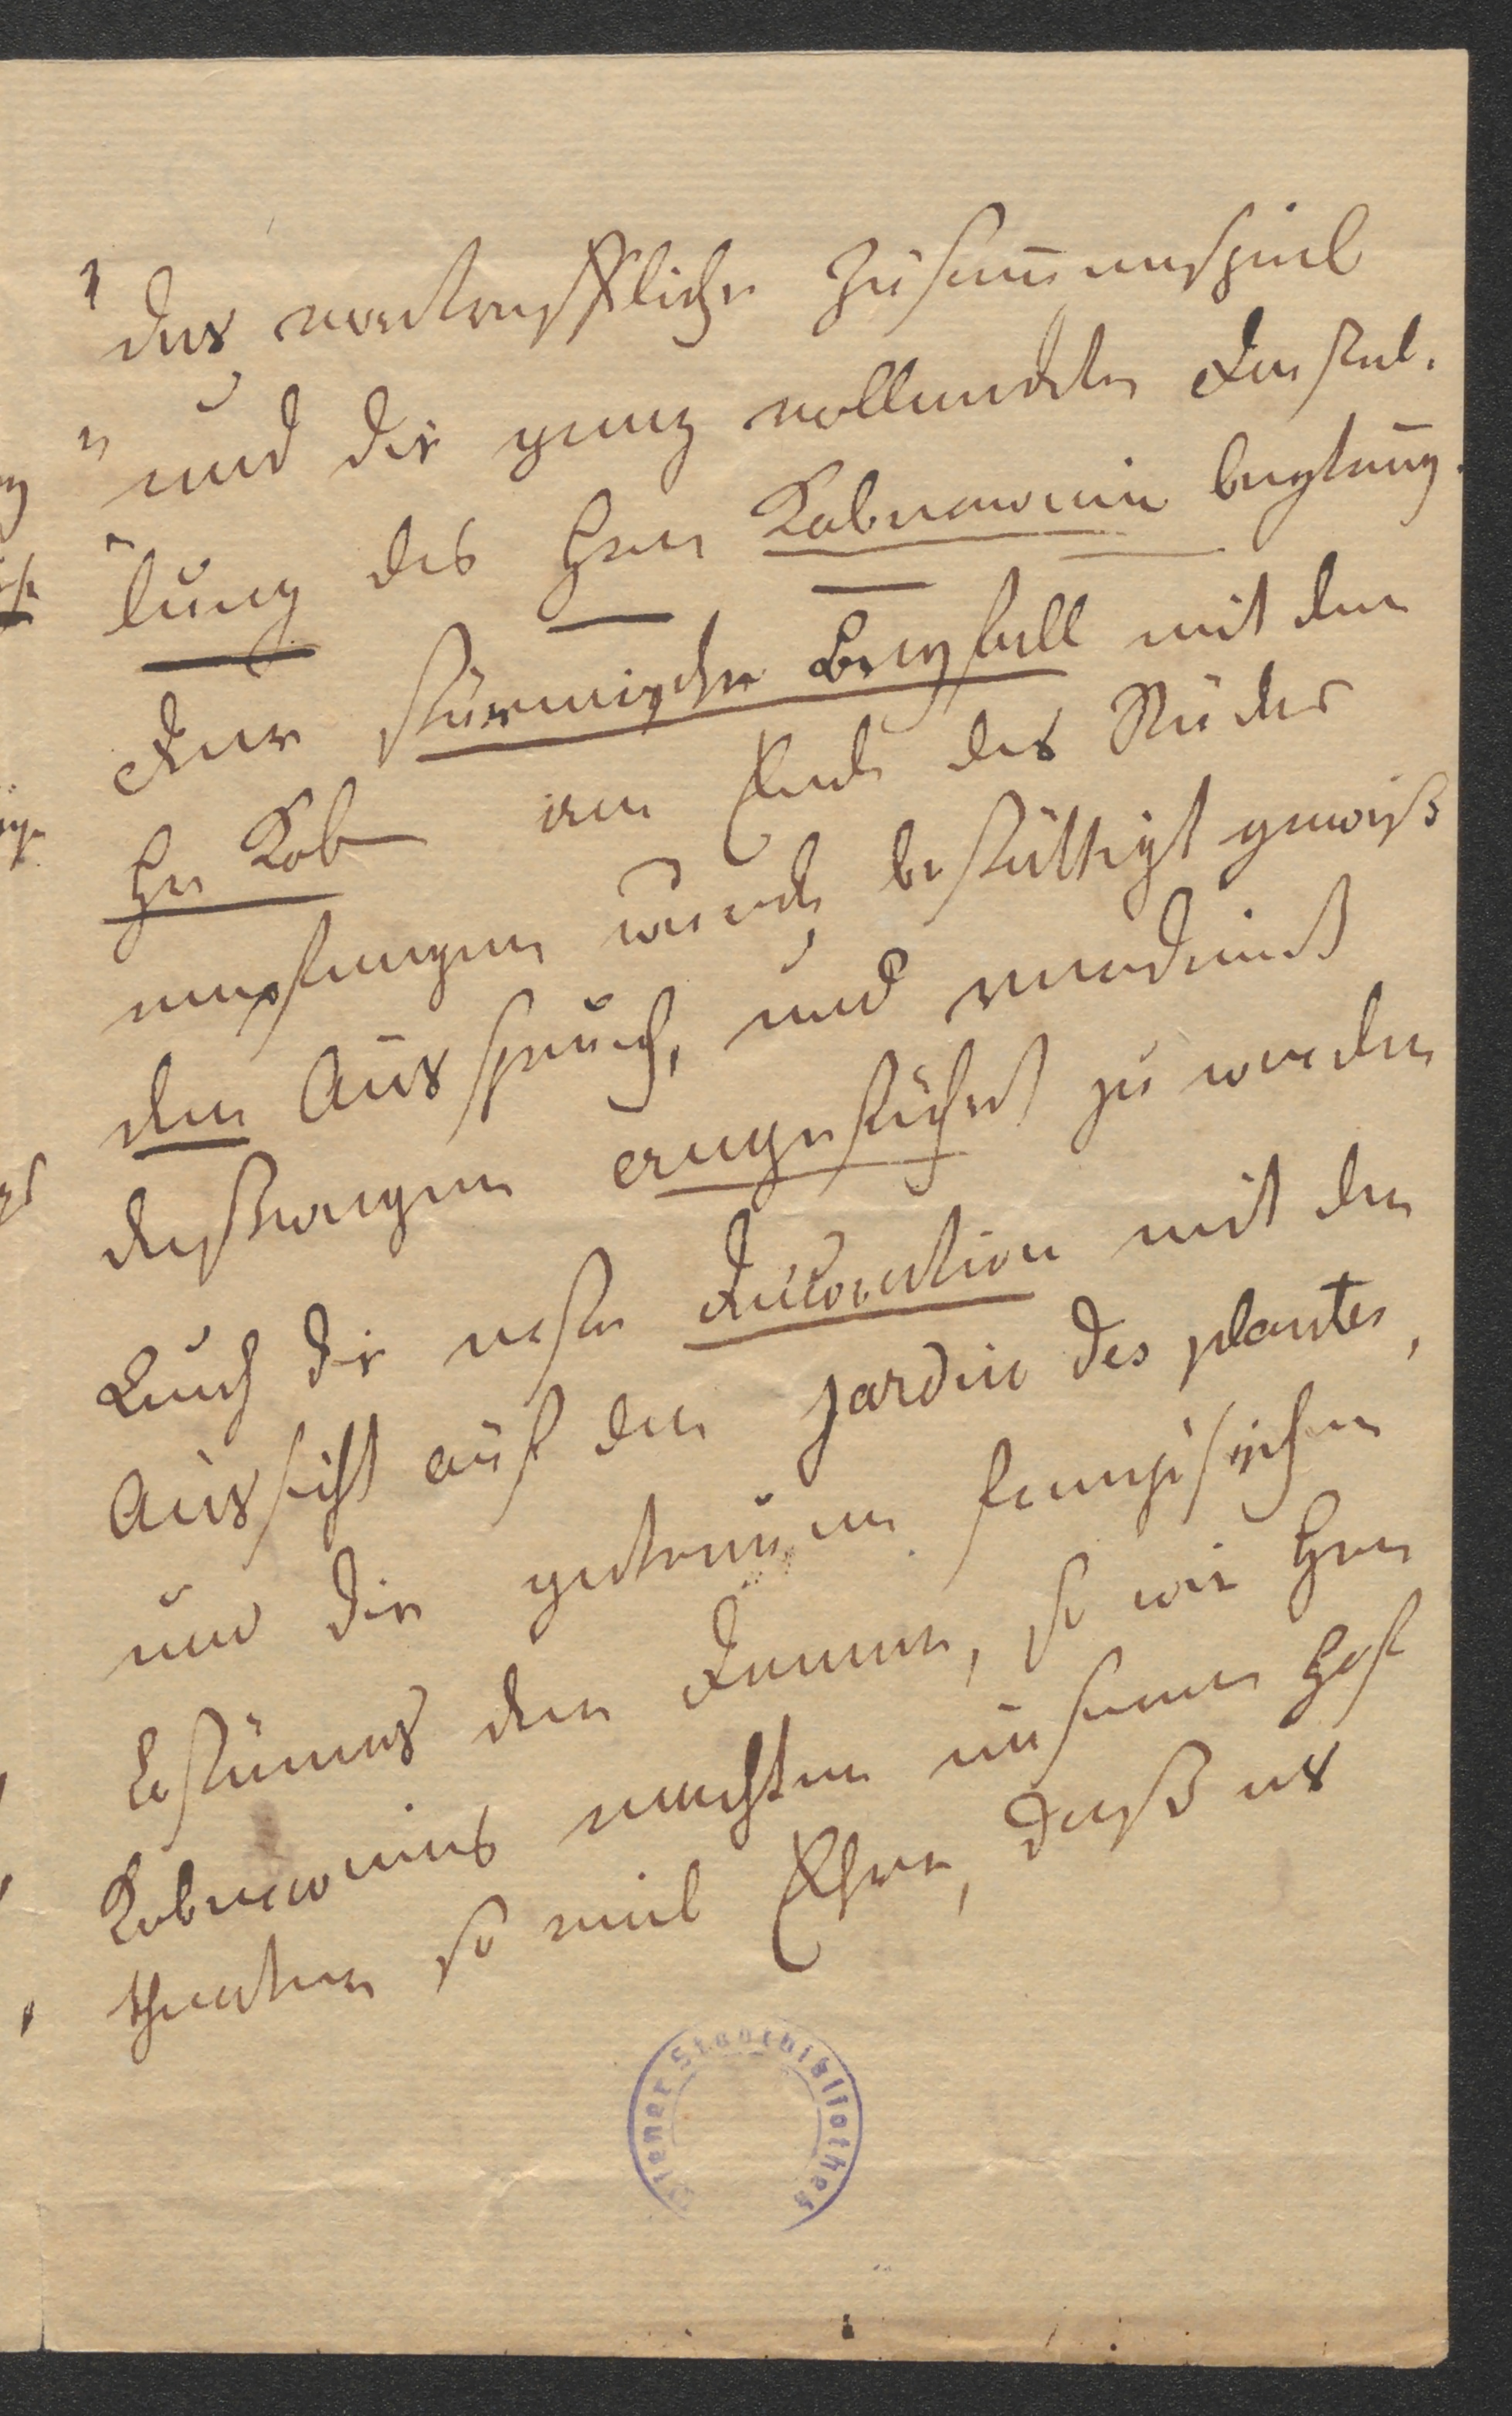 "das vortreffliche Zusam̄enspiel
"und die ganz vollendete Darstel-
"lung des Hrn Kobnewein
Der stürmische Beyfall mit dem
Hr Kob am Ende des Stückes
empfangen wurde bestättigt gewiß
den Ausspruch, und verdient
deßwegen angeführt zu werden
Auch die neue Decoration mit der
Aussicht auf den jardin des plantes,
und die getreuen französischen
Costümes der Damen, so wie Hrn
machten unserem Hof
theater so viel Ehre, daß es
Wiener Stadtbibliothek